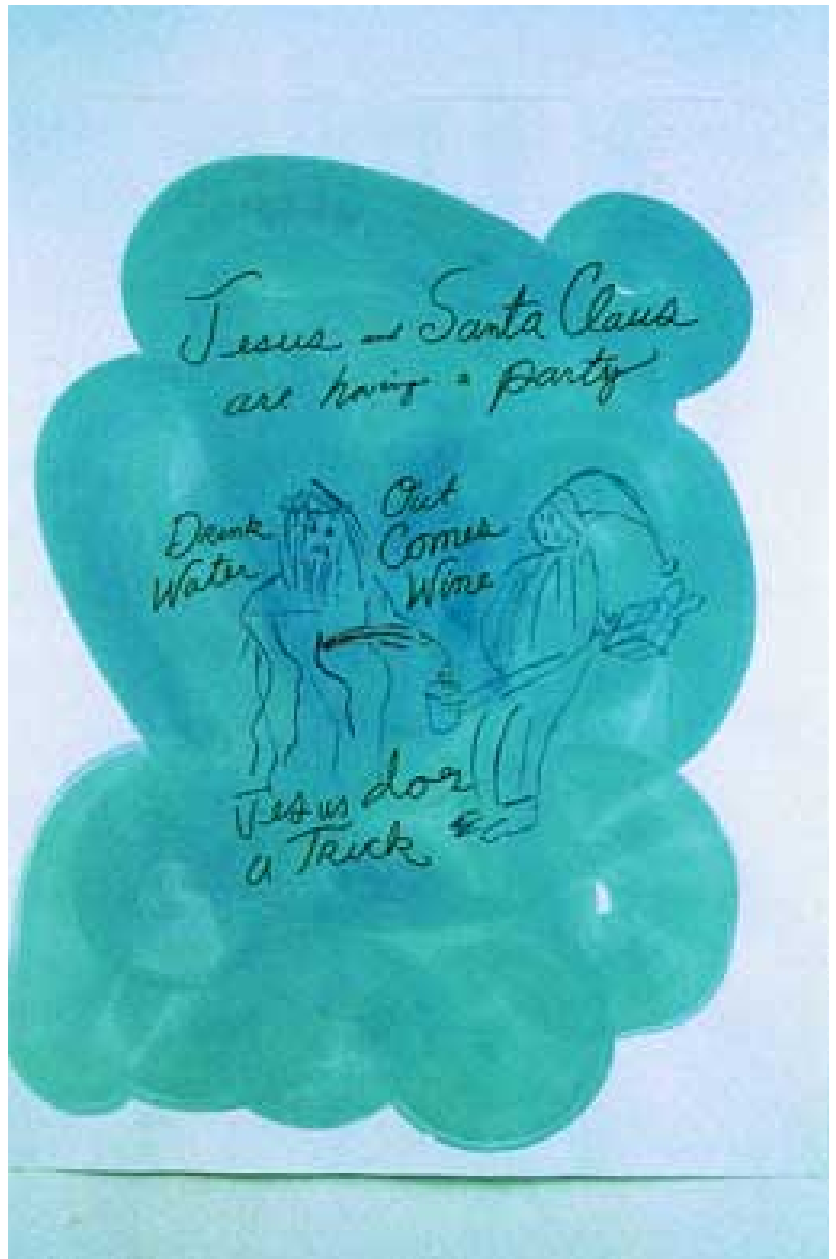 Jesus and Santa Claus
are having a party
Drink
Water
Out
Comes
Wine
Jesus does
a Trick